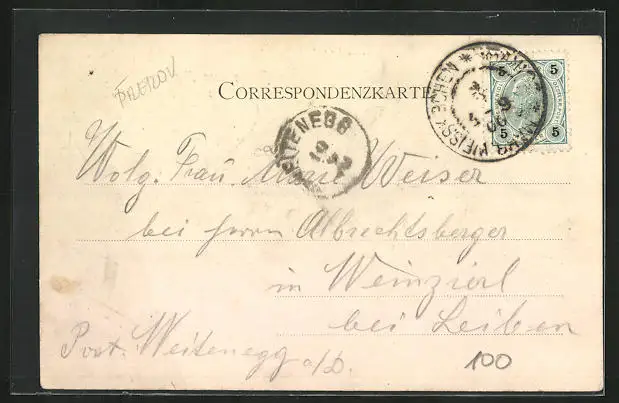 PŘEROV
CORRESPONDENZKARTE
5 5
5 5
MÄHR. WEISSKIRCHEN
WEITENEGG
Wolg. Frau Marie Weiser
bei Herrn Albrechtsberger
in Weinzierl
bei Leiben
Post. Weitenegg a/D.
100